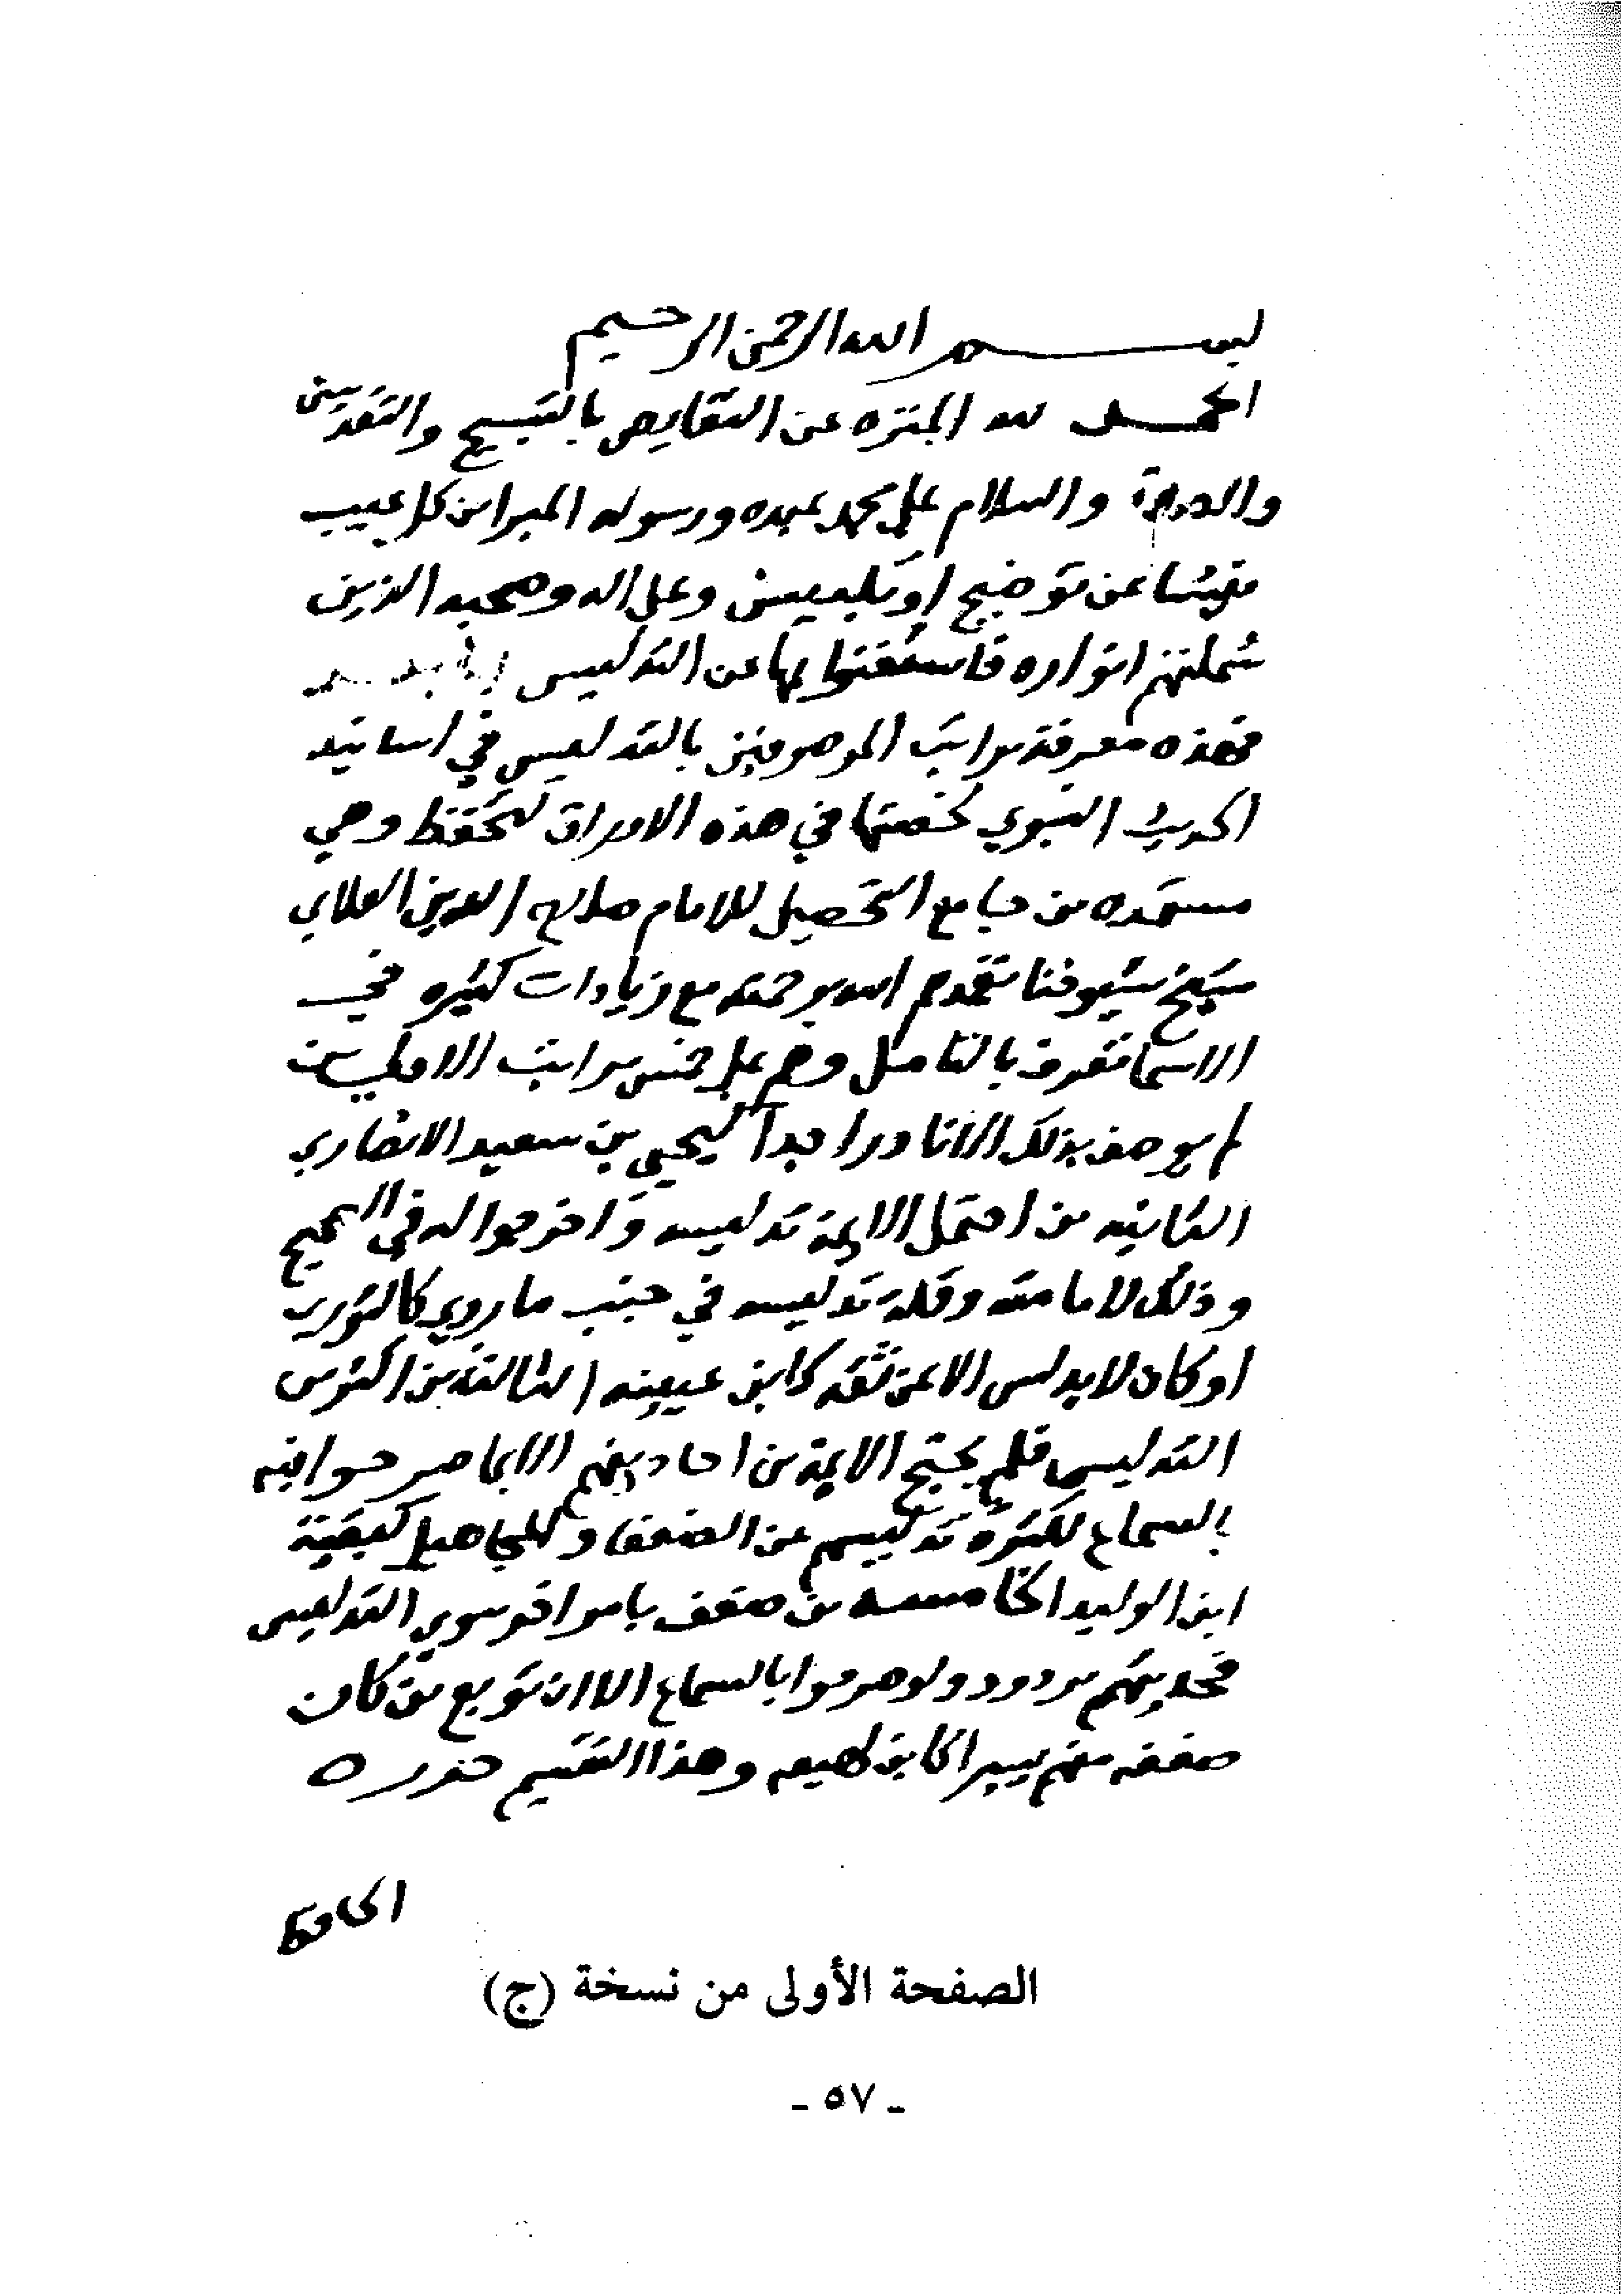 بسم الله الرحمن الرحيم
الحمد لله المنزه عن النقايص بالتسبيح والتقديس
والصلاة والسلام على محمد عبده ورسوله المبرا من كل عيب
عن توضيح او تلبيس وعلى اله وصحبه الذين
شملتهم انواره فاستغنوا بها عن التدليس
فهذه معرفة مراتب الموصوفين بالتدليس في اسانيد
الحديث النبوي لخصتها في هذه الاوراق لتحفظ وهي
مستمده من جامع التحصيل للامام صلاح الدين العلاي
شيخ شيوخنا تغمدهم الله برحمته مع زيادات كثيره في
الاسما تعرف بالتامل وهم على خمس مراتب الاولى من
لم يوصف بذلك الا نادرا جدا كيحيى بن سعيد الانصاري
الثانيه من احتمل الايمة تدليسه واخرجوا له في الصحيح
وذلك لامامته وقلة تدليسه في جنب ما روى كالثوري
او كان لا يدلس الا عن ثقه كابن عيينه الثالثة من اكثر من
التدليس فلم يحتج الايمة من احاديثهم الا بما صرحوا فيه
بالسماع لكثرة تدليسهم عن الضعفا والمجاهيل كبقية
ابن الوليد الخامسه من ضعف بامر اخر سوى التدليس
فحديثهم مردود ولو صرحوا بالسماع الا ان توبع من كان
ضعفه منهم يسيرا كابن لهيعه وهذا التقسيم حرره
الحافظ
الصفحة الأولى من نسخة (ج)
- ٥٧ -